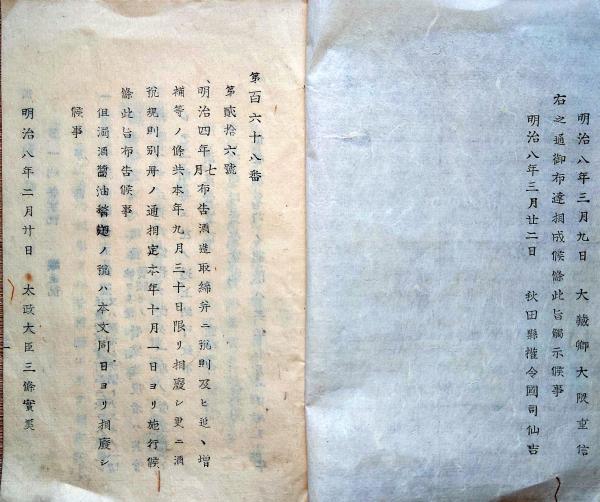 明治八年三月九日　大藏卿大隈重信
右之通御布達相成候條此旨觸示候事
明治八年三月廿二日　秋田縣權令國司仙吉
第百六十八番
第貳拾六號
明治四年七月布告酒造取締并ニ稅則及ヒ追ヽ增
補等ノ條共本年九月三十日限リ相廢シ更ニ酒
稅規則別册ノ通相定本年十月一日ヨリ施行候
條此旨布告候事
但濁酒醬油麴ノ稅ハ本文同日ヨリ相廢シ
候事
明治八年二月廿日　太政大臣三條實美